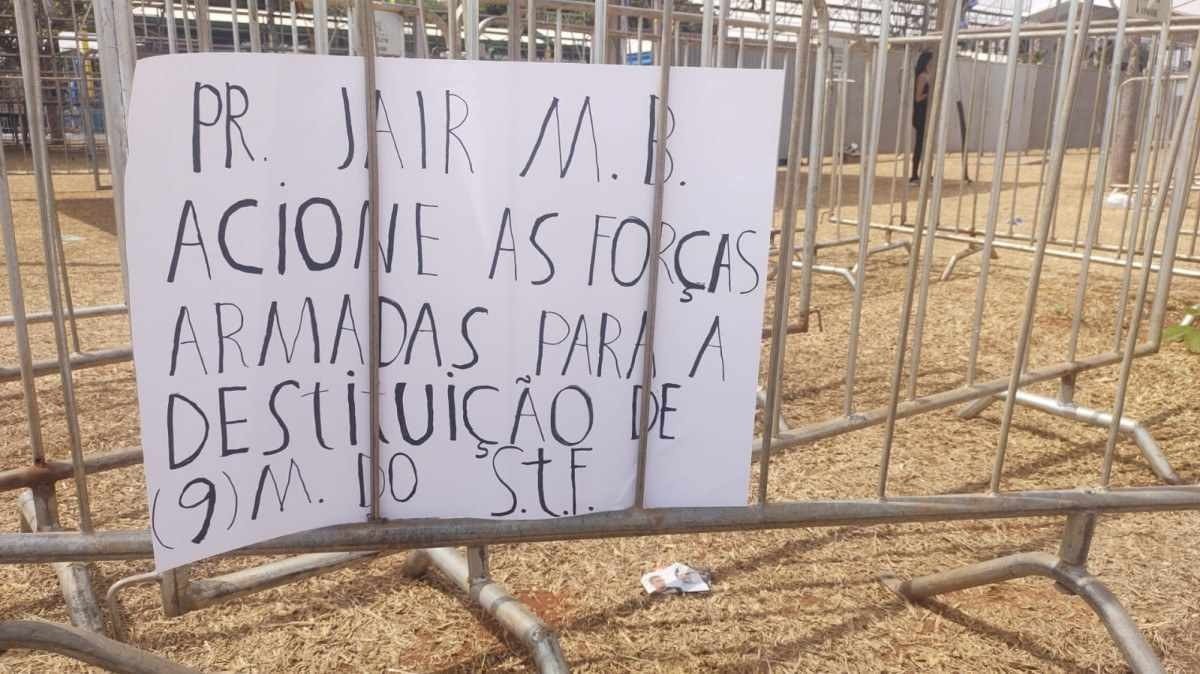 PR. JAIR M. B.
ACIONE AS FORÇAS
ARMADAS PARA A
DEStituiÇÃO DE
(9) M. DO S.t.F.